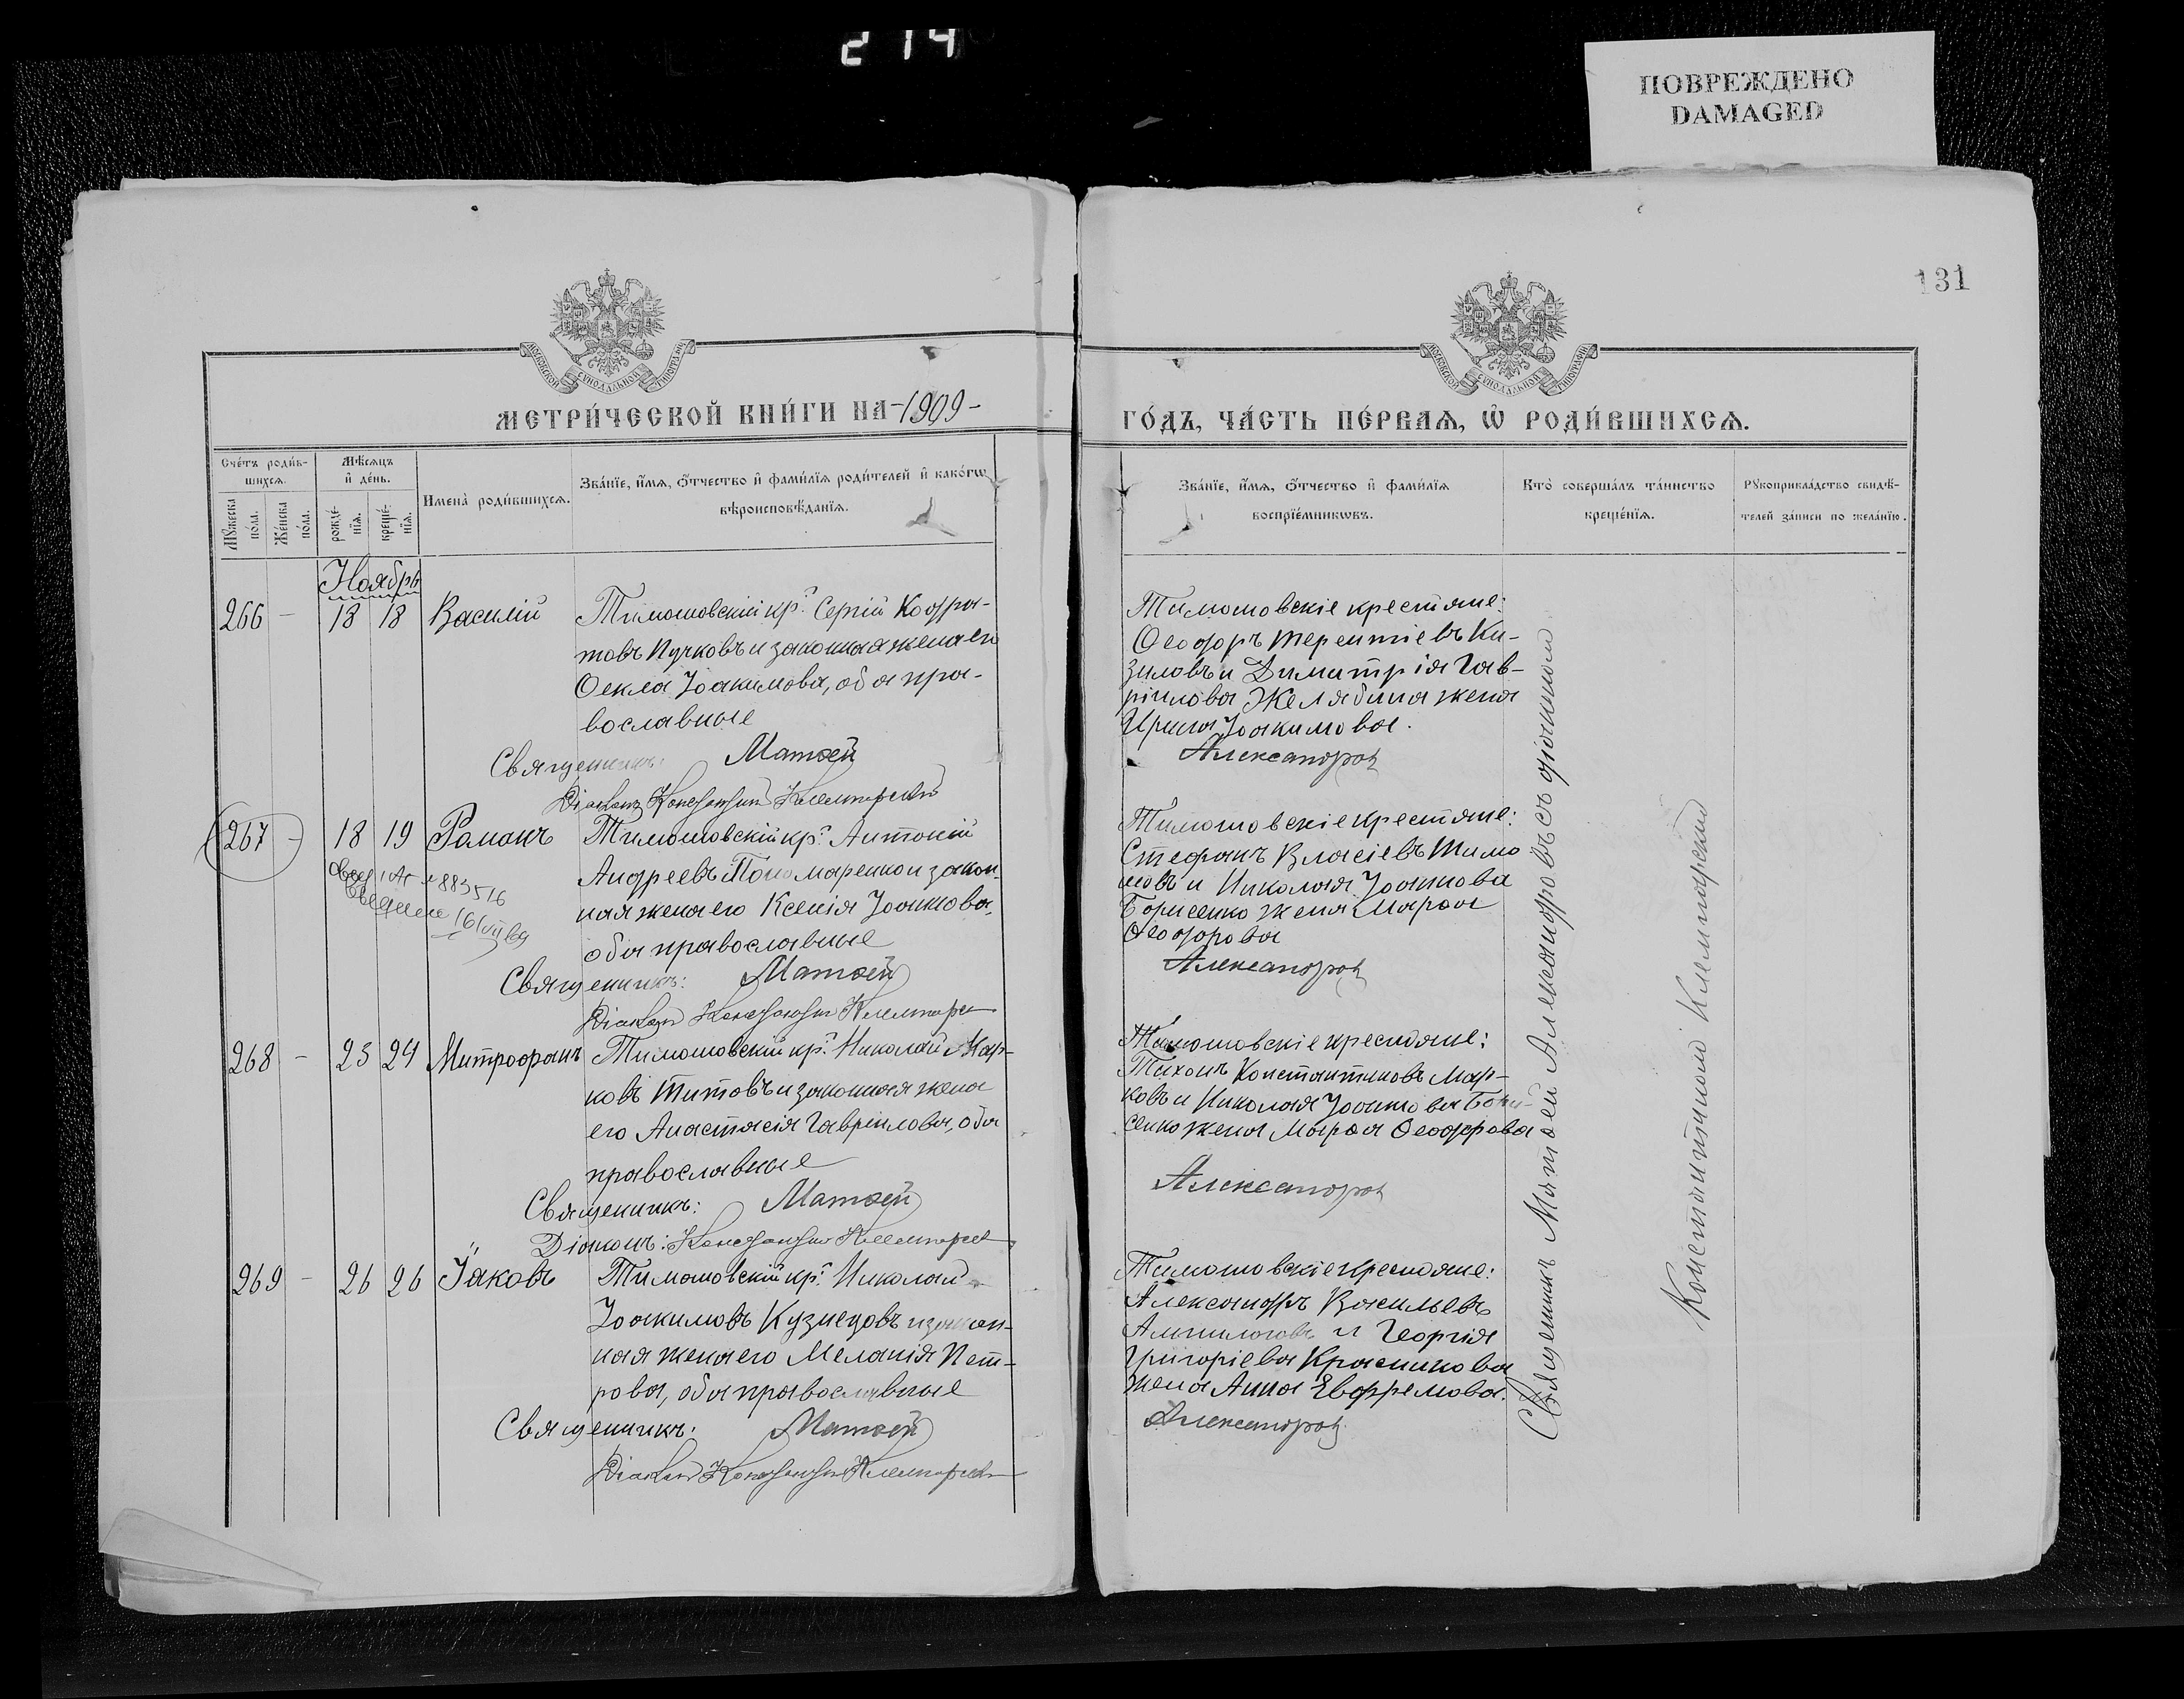 214
ПОВРЕЖДЕНО
DAMAGED
131
МОСКОВСКОЙ СѴНОДАЛЬНОЙ ТИПОГРАФІИ
МОСКОВСКОЙ СѴНОДАЛЬНОЙ ТИПОГРАФІИ
МЕТРИ́ЧЕСКОЙ КНИ́ГИ НА -1909-
ГО́ДЪ, ЧА́СТЬ ПЕ́РВАѦ, Ѡ҆ РОДИ́ВШИХСѦ.
Сче́тъ роди́в-
шихсѧ.
Мѹжеска по́ла.
Же́нска по́ла.
Мѣ́сѧцъ
и҆ де́нь.
рожде́-
нїѧ.
креще́-
нїѧ.
Имена̀ роди́вшихсѧ.
Зва́нїе, и҆́мѧ, ѻ҆́тчество и҆ фами́лїѧ роди́телей и҆ како́гѡ
вѣроисповѣ́данїѧ.
Зва́нїе, и҆́мѧ, ѻ҆́тчество и҆ фами́лїѧ
воспрїе́мникѡвъ.
Кто̀ соверша́лъ та́инство
креще́нїѧ.
Рꙋкоприкла́дство свидѣ́-
телей за́писи по жела́нїю.
Ноябрь
266 - 18 18 Василій
Тимошовскій кр. Сергій Кодра-
товъ Пучковъ и законная жена его
Ѳекла Іоакимова, оба пра-
вославные
Священникъ: Матѳей
Діаконъ Константинъ Клемпарскій
Тимошовскіе крестьяне:
Ѳеодоръ Терентіевъ Ки-
зиловъ и Димитрія Гав-
ріилова Желябина жена
Ирина Іоакимова.
Александровъ
267 - 18 19 Романъ
Тимошовскій кр. Антоній
Андреевъ Пономаренко и закон-
ная жена его Ксенія Іоаннова,
оба православные
883516
Священникъ: Матѳей
Діаконъ Константинъ Клемпарск
Тимошовскіе крестьяне:
Стефанъ Власіевъ Тимо
новъ и Николая Іоаннова
Борисенко жена Марѳа
Ѳеодорова
Александровъ
268 - 23 24 Митрофанъ
Тимошовскій кр. Николай Мар-
ковъ Титовъ и законная жена
его Анастасія Гавріилова, оба
православные
Священникъ: Матѳей
Діаконъ: Константинъ Клемпарск
Тимошовскіе крестьяне:
Тихонъ Константиновъ Мар-
ковъ и Николая Іоаннова Бори-
сенко жена Марѳа Ѳеодорова
Александровъ
269 - 26 26 Іаковъ
Тимошовскій кр. Николай
Іоакимовъ Кузнецовъ и закон-
ная жена его Меланія Пет-
рова, оба православные
Священникъ: Матѳей
Діаконъ Константинъ Клемпарск
Тимошовскіе крестьяне:
Александръ Васильевъ
Ампилоговъ и Георгія
Григоріева Красникова
жена Анна Евфремова.
Александровъ
Священникъ Матѳей Александровъ съ діакономъ
Константиномъ Клемпарскимъ